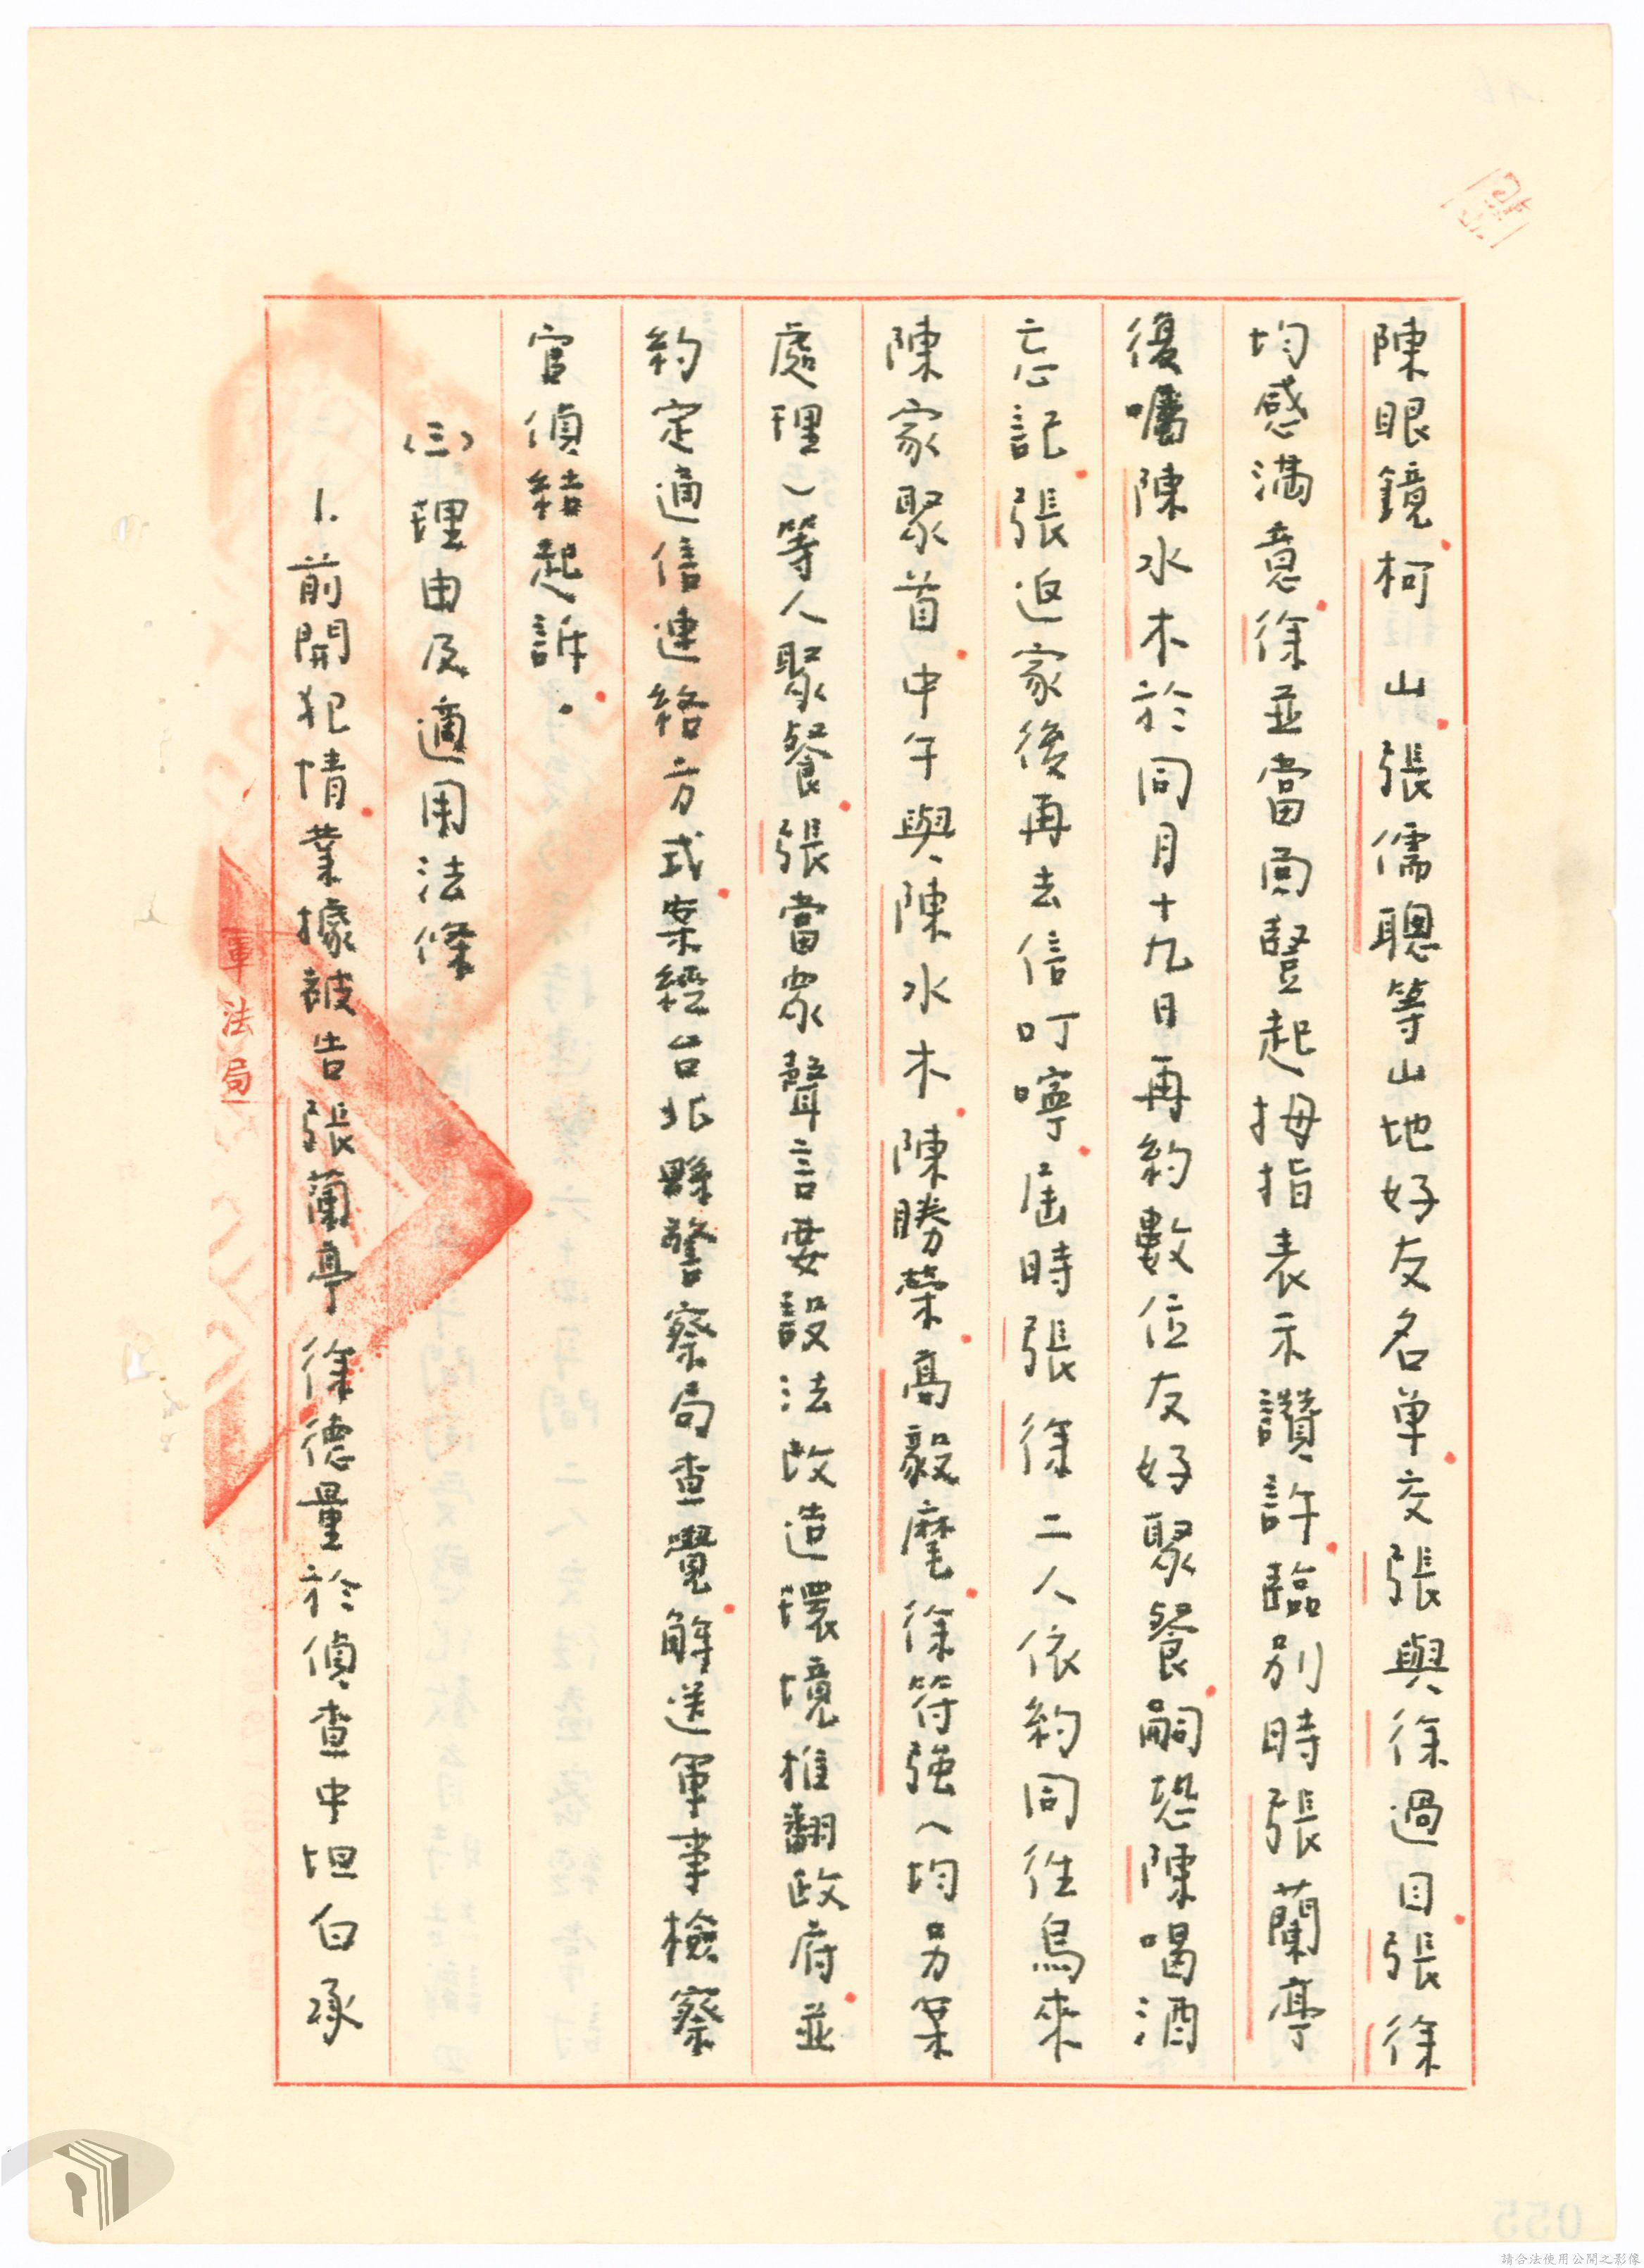 陳眼鏡柯山張儒聰等山地好友名单交張與徐過目張徐
均感滿意徐並當面豎起拇指表示讚許臨別時張蘭亭
復囑陳水木於同月十九日再約數位友好聚餐嗣恐陳喝酒
忘記張返家後再去信叮嚀屆時張徐二人依約同往烏來
陳家聚首中午與陳水木陳勝榮高毅麾徐符強（均另案
處理）等人聚餐張當眾聲言要設法改造環境推翻政府並
約定通信連絡方式案經台北縣警察局查覺解送軍事檢察
官偵結起訴。
(三)理由及適用法條
1.前開犯情業據被告張蘭亭徐德量於偵查中坦白承
軍法局
055
請合法使用公開之影像